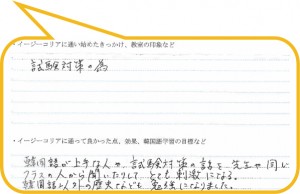 ・イージーコリアに通い始めたきっかけ、教室の印象など
試験対策の為
・イージーコリアに通って良かった点、効果、韓国語学習の目標など
韓国語が上手な人や、試験対策の話を先生や同じ
クラスの人から聞いたりして、とても刺激になる。
韓国語以外の歴史なども勉強になりました。